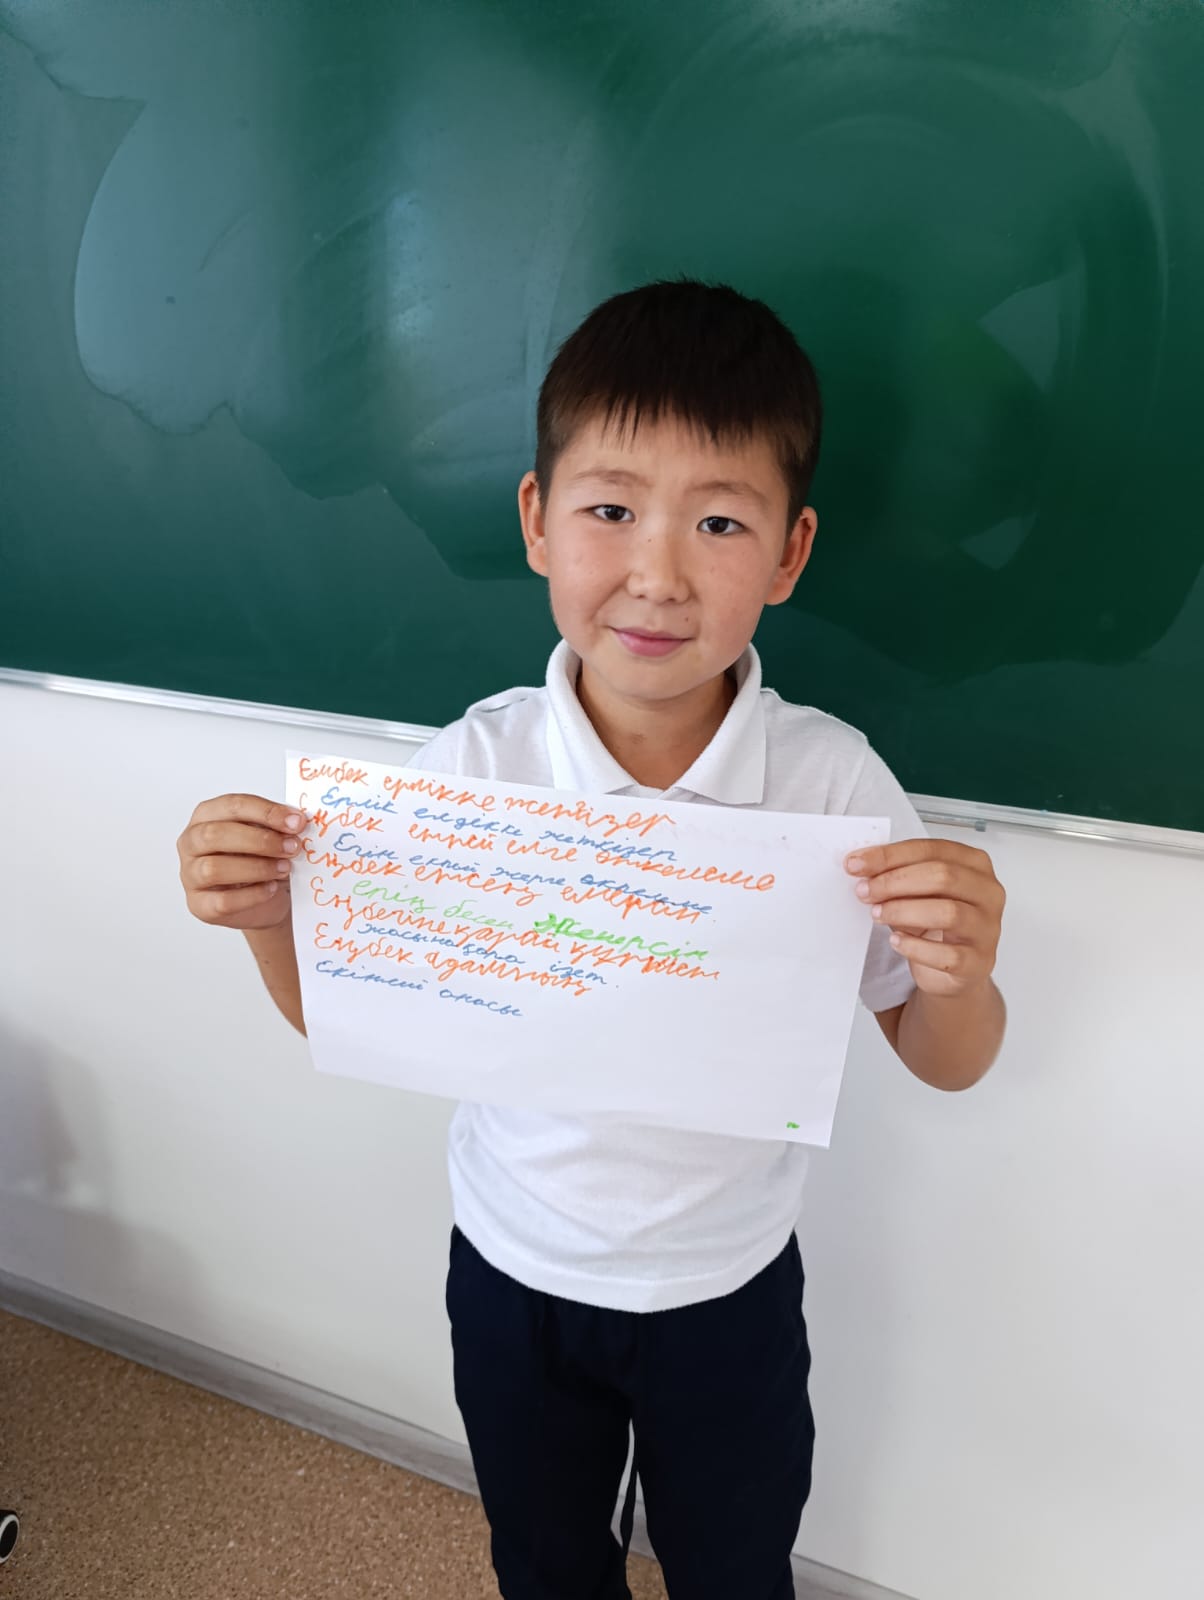 Еңбек ерлікке жеткізер
Ерлік елдікке жеткізер
Еңбек етпей елге өкпелеме
Егін екпей жерге өкпелеме
Еңбек етсең емерсің
ерің бесен Женерсін
Еңбегіне қарай құрмет
жасына қара ізет.
Еңбек адамның
екінші анасы